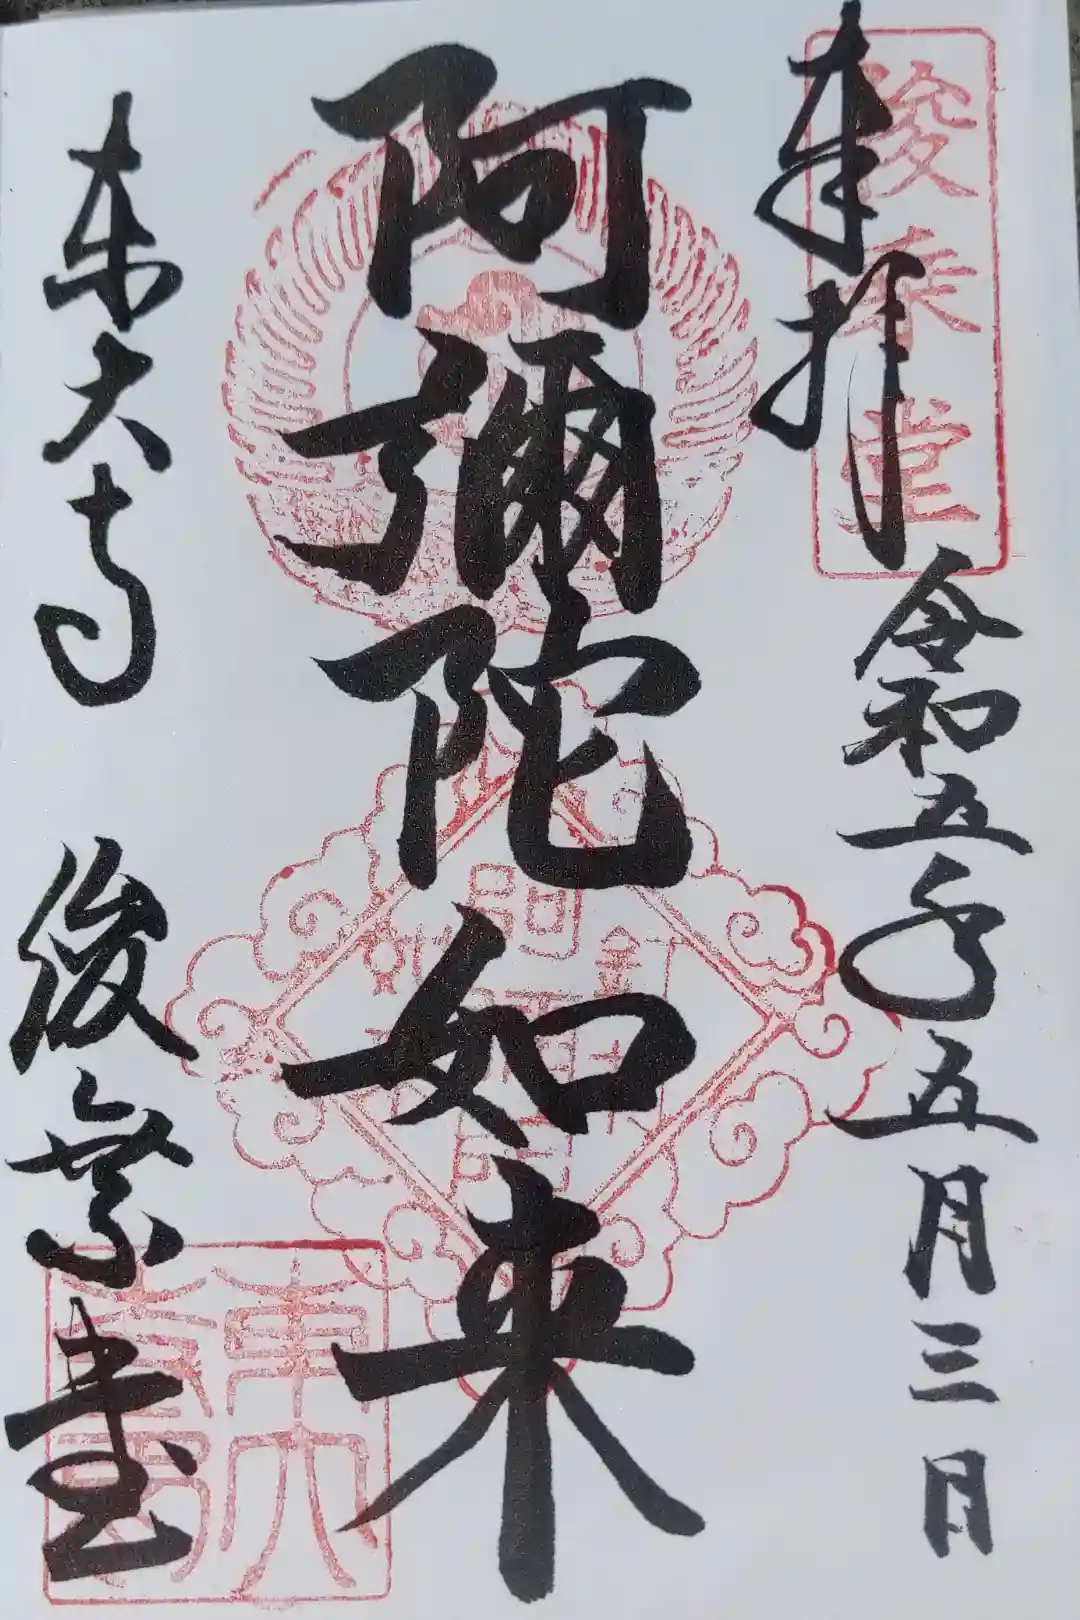 奉拝
俊乗堂
令和五年五月三日
阿彌陀如来
東大寺
俊乗堂
東大寺